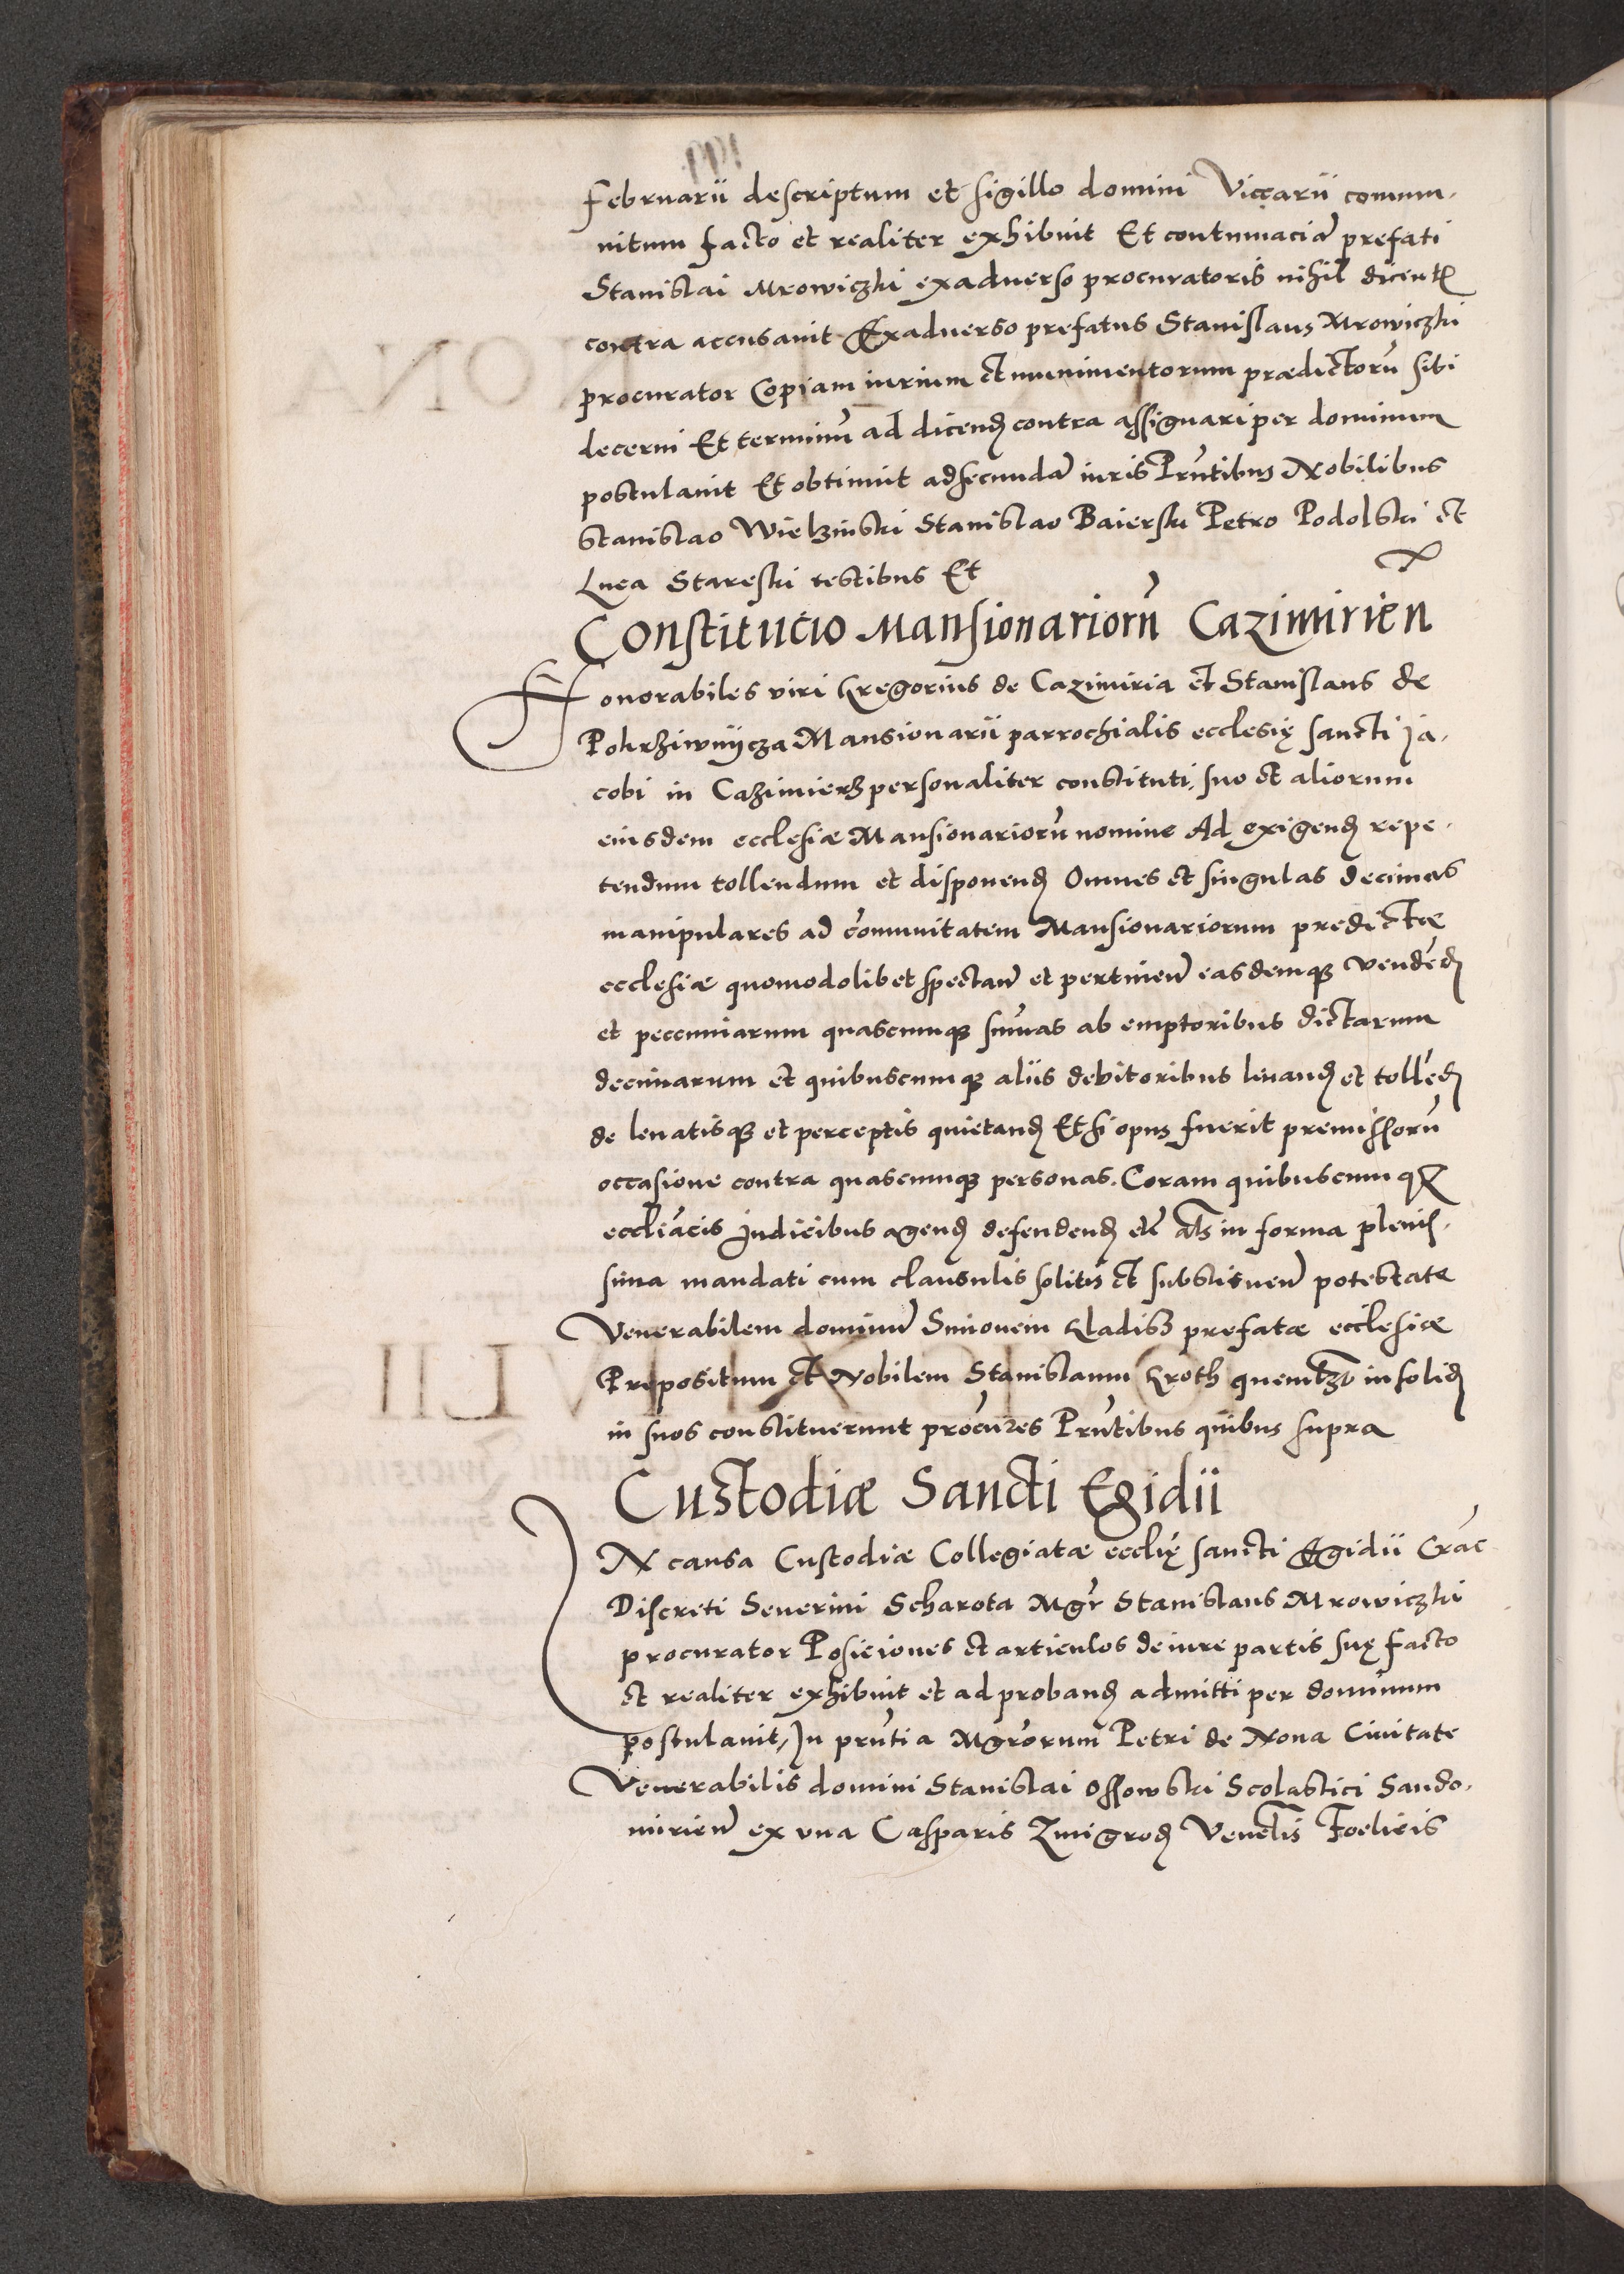 Februarii descriptum et sigillo domini Viccarii comum-
nitum facto et realiter exhibuit Et contumaciã prefati
Stanislai Mrowiczki exadverso procuratoris nihil dicentꝭ
contra accusavit Exadverso prefatus Stanislaus Mrowiczki
procurator Copiam iurium et munimentorum prædictorũ sibi
decerni Et terminũ ad dicenđ contra assignari per dominum
postulavit Et obtinuit ad secundã iuris Prñtibus Nobilibus
Stanislao Wielzinski Stanislao Baierski Petro Podolski et
Luca Stareski testibus Et
Constitucio Mansionariorũ Cazimirien
Honorabiles viri Gregorius de Cazimiria et Stanislaus de
Pokrziwnijcza Mansionarii parrochialis ecclesię sancti Ja-
cobi in Cazimierz personaliter constituti, suo et aliorum
eiusdem ecclesiæ Mansionariorũ nomine Ad exigenđ repe-
tendum tollendum et disponenđ Omnes et singulas decimas
manipulares ad cõmunitatem Mansionariorum predictæ
ecclesiæ quomodolibet spectañ et pertineñ easdemqꝫ vendẽđ
et peccuniarum quascumqꝫ sum̃as ab emptoribus dictarum
decimarum et quibuscumqꝫ aliis debitoribus levanđ et tollẽđ
de levatisqꝫ et perceptis quietanđ Et si opus fuerit premissorũ
occasione contra quascumqꝫ personas. Coram quibuscumqꝫ
eccliãcis Judicibus agenđ defendenđ etc̃ al̃s in forma plenis-
sima mandati cum clausulis solitis et substitueñ potestate
Venerabilem dominũ Simonem Gladisz prefatæ ecclesiæ
Prepositum et Nobilem Stanislaum Kroth quemlꝫt insoliđ
in suos constituerunt procũres Prñtibus quibus supra
Custodiæ Sancti Egidii
IN causa Custodiæ Collegiatæ ecclię̃ sancti Egidii Crac̃
Discreti Severini Scharota Mgr̃ Stanislaus Mrowiczki
procurator Posiciones et articulos de iure partis suę facto
et realiter exhibuit et ad probanđ admitti per dominum
postulavit, In prñtia Mgrõrum Petri de Nova Civitate
Venerabilis domini Stanislai Ossowski Scolastici Sando-
mirieñ ex una Casparis Zmigrođ Venel̃is Foelicis